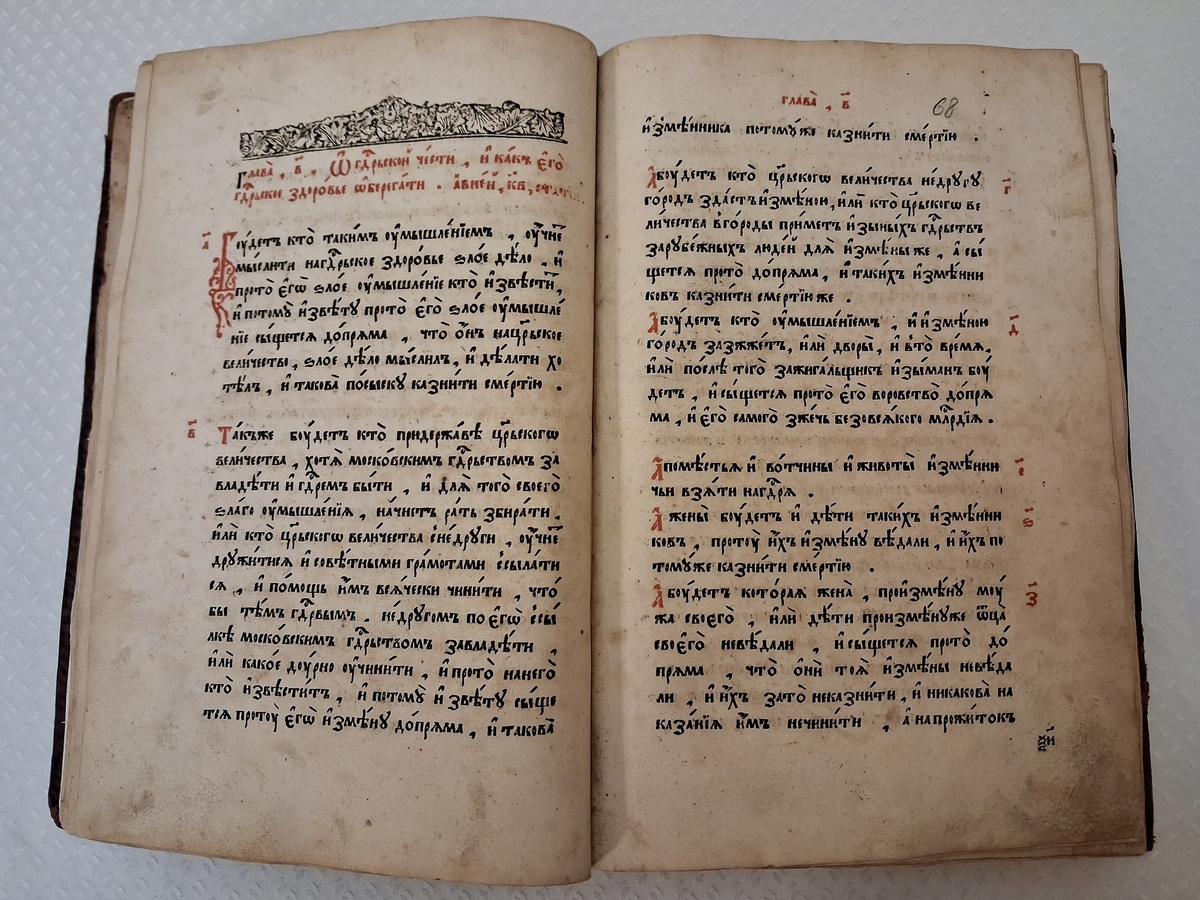 Глава̀, в҃, Ѡ гдрьской че́сти, и҆ ка́къ є҆го̀
гдрьское здоро́вье ѡ҆берега́ти. А в не́й, к҃в, статьѝ.
а҃
Бꙋ́детъ кто̀ таки́мъ ᲂу҆мышле́нїемъ, ᲂу҆чне
мы́слити на гдрьское здоро́вье ѕло́е дѣ́ло, и҆
про то̀ є҆гѡ̀ ѕло́е ᲂу҆мышле́нїе кто̀ и҆звѣсти́тъ,
и҆ по томꙋ̀ и҆звѣ́тꙋ про то̀ є҆го̀ ѕло́е ᲂу҆мышле́
нїе сы́щется допря́ма, что̀ ѻ҆́нъ на црьское
вели́чество, ѕло́е дѣ́ло мы́слилъ, и҆ дѣ́лати хо
тѣ́лъ, и҆ такова̀ по сы́скꙋ казни́ти сме́ртїю.
в҃
Та́къже бꙋ́детъ кто̀ при держа́вѣ црьскогѡ
вели́чества, хотя̀ моско́вскимъ гдрьствомъ за
владѣ́ти и҆ гдремъ бы́ти, и҆ для̀ того̀ своего̀
ѕла́го ᲂу҆мышле́нїя, начне́тъ ра́ть збира́ти,
и҆лѝ кто̀ црьскогѡ вели́чества с не́дрꙋги, ᲂу҆чне
дрꙋжи́тися и҆ совѣ́тными гра́мотами ссыла́ти
ся, и҆ по́мощь и҆̀мъ вся́чески чини́ти, что́
бы тѣ́мъ гдрвымъ. не́дрꙋгомъ по є҆гѡ̀ ссы́
лкѣ моско́вскимъ гдрьствомъ завладѣ́ти,
и҆лѝ како́е дꙋ́рно ᲂу҆чини́ти, и҆ про то̀ на него̀
кто̀ и҆звѣсти́тъ, и҆ по томꙋ̀ и҆звѣ́тꙋ сы́ще
тся про тꙋ̀ є҆гѡ̀ и҆змѣ́нꙋ допря́ма, и҆ такова̀
глава̀, в҃
68
и҆змѣ́нника по томꙋ́же казни́ти сме́ртїю.
г҃
А бꙋ́детъ кто̀ црьскогѡ вели́чества не́дрꙋгꙋ
го́родъ зда́стъ и҆змѣ́ною, и҆лѝ кто̀ црьскогѡ ве
ли́чества в го́роды при́метъ и҆з ы́ныхъ гдрьствъ
зарꙋбе́жныхъ люде́й для̀ и҆змѣ́ны же, а҆ сы́
щется про то̀ допря́ма, и҆ таки́хъ и҆змѣ́нни
ковъ казни́ти сме́ртїю же.
д҃
А бꙋ́детъ кто̀ ᲂу҆мышле́нїемъ, и҆ и҆змѣ́ною
го́родъ зазже́тъ, и҆лѝ дворы̀, и҆ в то̀ вре́мя,
и҆лѝ по́слѣ того̀ зажига́льщикъ и҆зы́манъ бꙋ́
детъ, и҆ сы́щется про то̀ є҆го̀ воровство̀ допря́
ма, и҆ є҆го̀ самого̀ зже́чь безо вся́кого млрдїя.
є҃
А помѣ́стья и҆ во́тчины и҆ животы̀ и҆змѣ́нни
чьи взя́ти на гдря.
ѕ҃
А жены̀ бꙋ́детъ и҆ дѣ́ти таки́хъ и҆змѣ́нни
ковъ, про тꙋ̀ и҆́хъ и҆змѣ́нꙋ вѣ́дали, и҆ и҆́хъ по
томꙋ́же казни́ти сме́ртїю.
з҃
А бꙋ́детъ кото́рая жена̀, про и҆змѣ́нꙋ мꙋ́
жа своего̀, и҆лѝ дѣ́ти про и҆змѣ́нꙋ же ѿца̀
своего̀ не вѣ́дали, и҆ сы́щется про то̀ до́
пряма, что̀ ѻ҆нѝ тоя̀ и҆змѣ́ны не вѣ́да
ли, и҆ и҆́хъ за то̀ не казни́ти, и҆ никакова̀ на
каза́нїя и҆̀мъ не чини́ти, а҆ на прожи́токъ